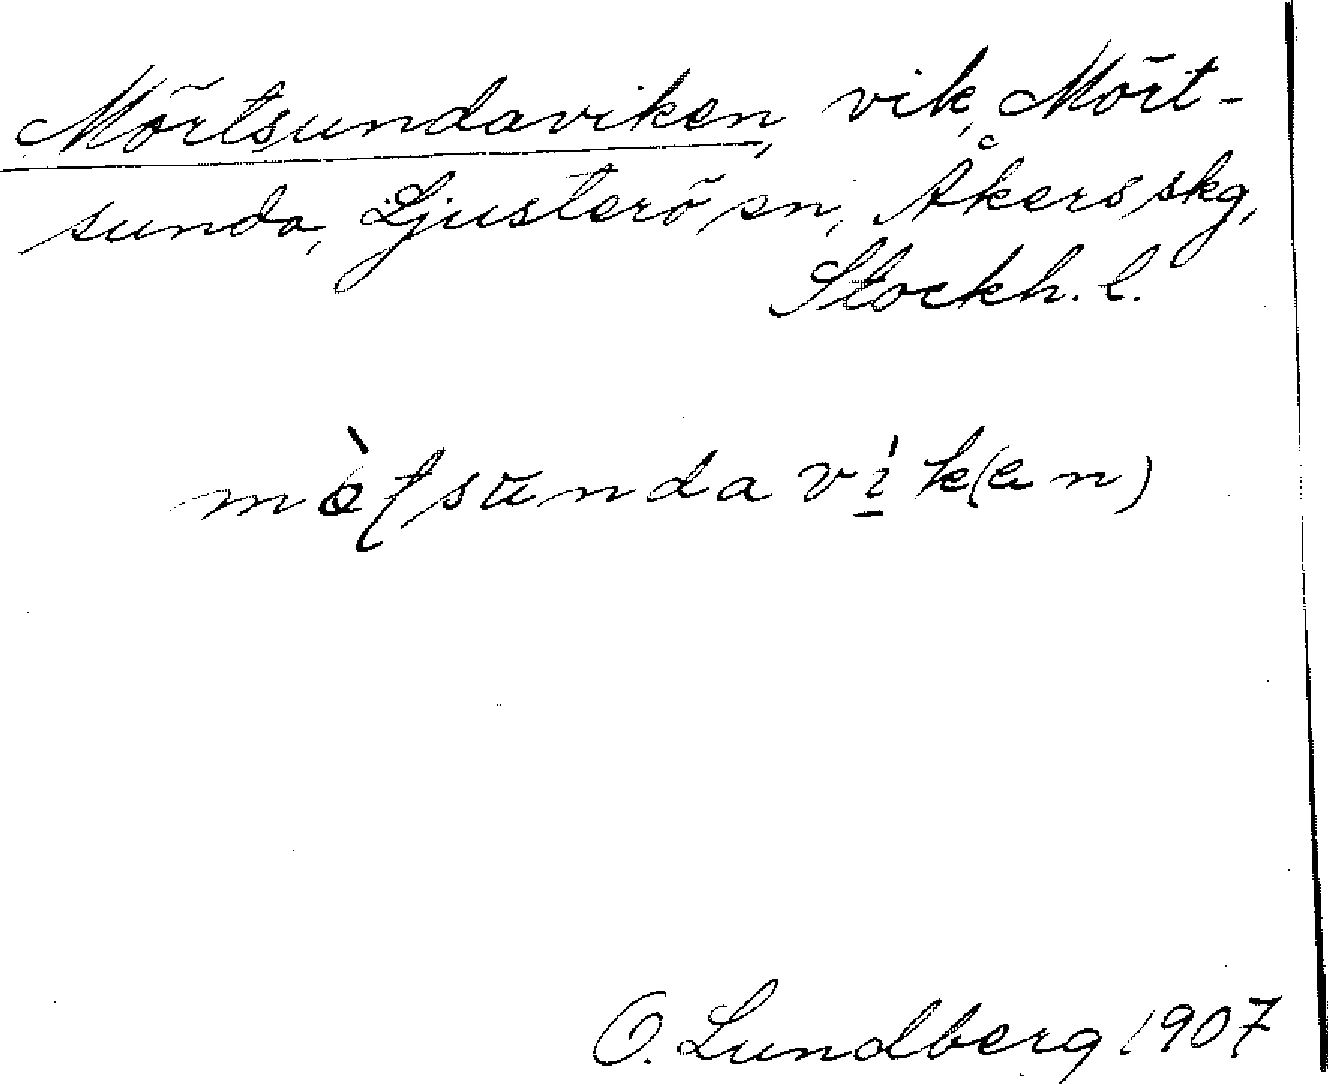 Mörtsundaviken, vik, Mört-
sunda, Ljusterö sn, Åkers skg,
Stockh. l.
O. Lundberg 1907